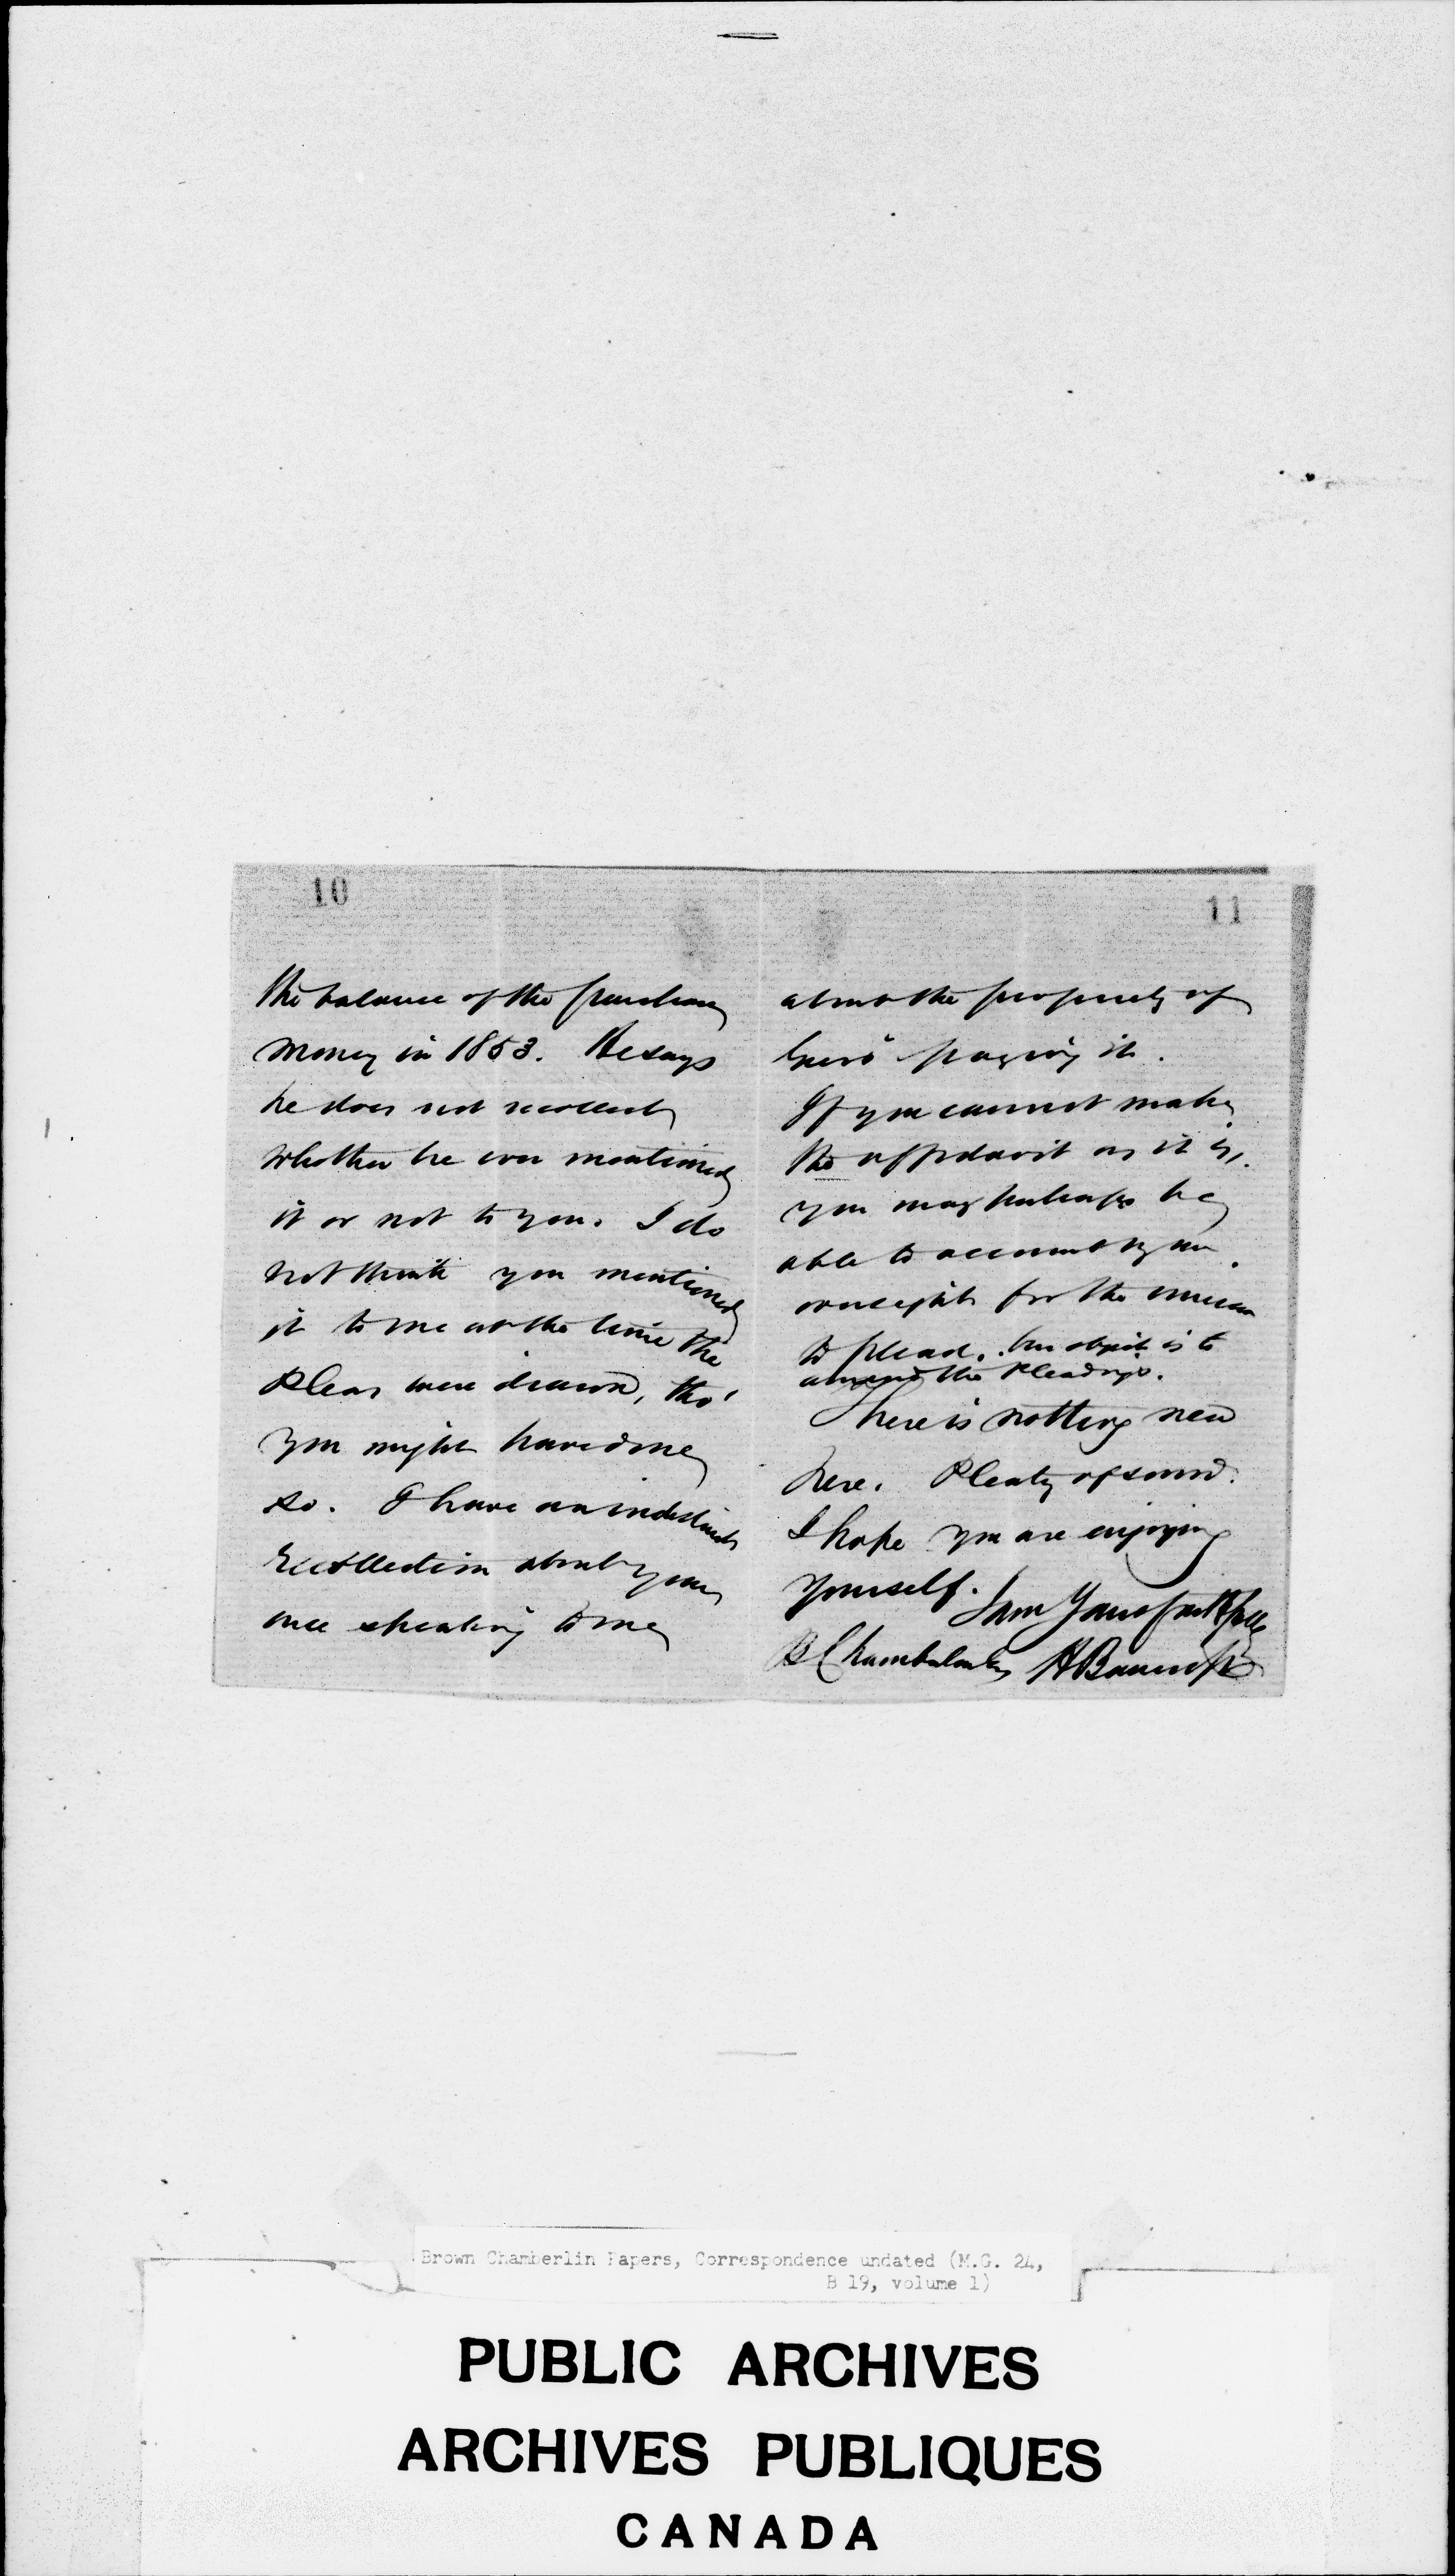 10
the balance of the purchase
money in 1853. He says
he does not recollect
whether he ever mentioned
it or not to you. I do
not think you mentioned
it to me at the time the
Pleas were drawn, tho'
you might have done
so. I have an indistinct
recollection about your
once speaking to me
11
about the propriety of
paying it.
If you cannot make
the affidavit as it is,
you may perhaps be
able to account by an
oversight for the omission
to plead. Our object is to
amend the Pleadings.
There is nothing new
here. Plenty of snow.
I hope you are enjoying
yourself.
I am Yours faithfully
B Chamberlin A Bancroft
Brown Chamberlin Papers, Correspondence undated (M.G. 24,
B 19, volume 1)
PUBLIC ARCHIVES
ARCHIVES PUBLIQUES
CANADA